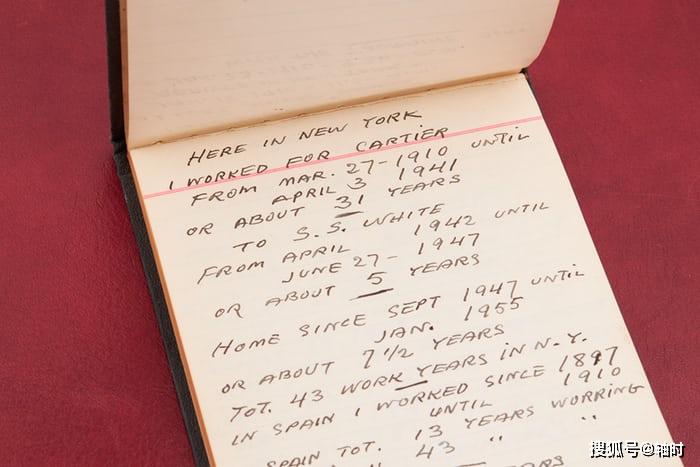 HERE IN NEW YORK
I WORKED FOR CARTIER
FROM MAR. 27-1910 UNTIL
APRIL 3 1941
OR ABOUT 31 YEARS
TO S.S. WHITE
FROM APRIL 1942 UNTIL
JUNE 27- 1947
OR ABOUT 5 YEARS
HOME SINCE SEPT 1947 UNTIL
JAN. 1955
OR ABOUT 7 1/2 YEARS
TOT. 43 WORK YEARS IN N.Y.
IN SPAIN I WORKED SINCE 1897
UNTIL 1910
SPAIN TOT. 13 YEARS WORRING
" 43 " "
YEARS
搜狐号@轴时